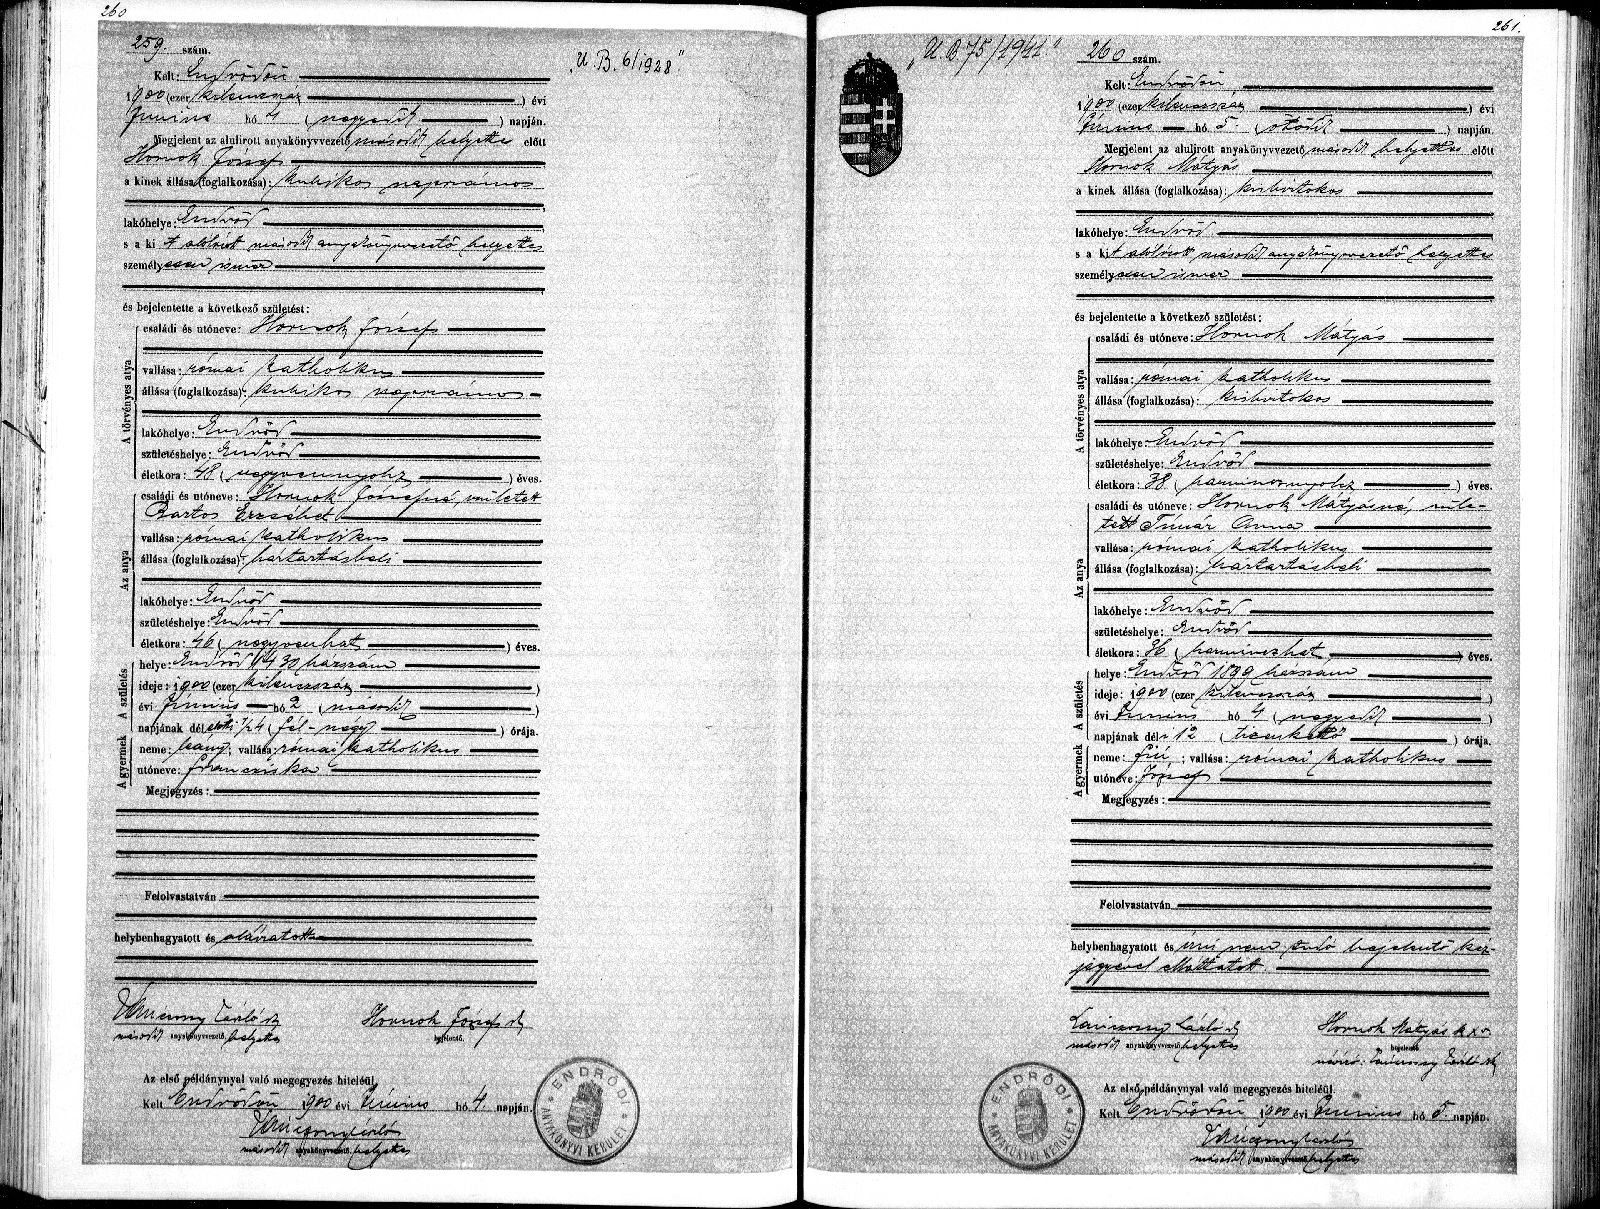 260
259. szám.
„U. B. 6/1928."
Kelt: Endrődön
1900 (ezer kilenczszáz) évi
Június hó 4 (negyedik) napján.
Megjelent az alulirott anyakönyvvezető második helyettes előtt
Hornok József
a kinek állása (foglalkozása): kubikos napszámos
lakóhelye: Endrőd
s a kit alólirott második anyakönyvvezető helyettes
személyesen ismer
és bejelentette a következő születést:
A törvényes atya
családi és utóneve: Hornok József
vallása: római katholikus
állása (foglalkozása): kubikos napszámos
lakóhelye: Endrőd
születéshelye: Endrőd
életkora: 48 (negyvennyolcz) éves.
Az anya
családi és utóneve: Hornok Józsefné, született
Bartos Erzsébet
vallása: római katholikus
állása (foglalkozása): háztartásbeli
lakóhelye: Endrőd
születéshelye: Endrőd
életkora: 46 (negyvenhat) éves.
A születés
helye: Endrőd 1430 házszám
ideje: 1900 (ezer kilenczszáz)
évi Június hó 2 (második)
napjának dél előtti 1/2 4 (fél-négy) órája.
A gyermek
neme: leány; vallása: római katholikus
utóneve: Francziska
Megjegyzés:
Felolvastatván
helybenhagyatott és aláiratott
Hornok József sk
második anyakönyvvezető helyettes
bejelentő.
Az első példánynyal való megegyezés hiteléül.
Kelt Endrődön 1900 évi Június hó 4. napján.
második anyakönyvvezető helyettes
ENDRŐDI ANYAKÖNYVI KERÜLET
261.
„U. B. 75/1941"
260 szám.
Kelt: Endrődön
1900 (ezer kilenczszáz) évi
Június hó 5. (ötödik) napján.
Megjelent az alulirott anyakönyvvezető második helyettes előtt
Hornok Mátyás
a kinek állása (foglalkozása): kisbirtokos
lakóhelye: Endrőd
s a kit alólirott második anyakönyvvezető helyettes
személyesen ismer
és bejelentette a következő születést:
A törvényes atya
családi és utóneve: Hornok Mátyás
vallása: római katholikus
állása (foglalkozása): kisbirtokos
lakóhelye: Endrőd
születéshelye: Endrőd
életkora: 38 (harmincznyolcz) éves.
Az anya
családi és utóneve: Hornok Mátyásné, szüle-
tett Timár Anna
vallása: római katholikus
állása (foglalkozása): háztartásbeli
lakóhelye: Endrőd
születéshelye: Endrőd
életkora: 36 (harminczhat) éves.
A születés
helye: Endrőd 1899 házszám
ideje: 1900 (ezer kilenczszáz)
évi Június hó 4 (negyedik)
napjának déli 12 (tizenkettő) órája.
A gyermek
neme: fiú; vallása: római katholikus
utóneve: József
Megjegyzés:
Felolvastatván
helybenhagyatott és írni nem tudó bejelentő kéz-
jegyével elláttatott
Hornok Mátyás k x v
második anyakönyvvezető helyettes
bejelentő
Az első példánynyal való megegyezés hiteléül.
Kelt Endrődön 1900 évi Június hó 5. napján.
második anyakönyvvezető helyettes
ENDRŐDI ANYAKÖNYVI KERÜLET